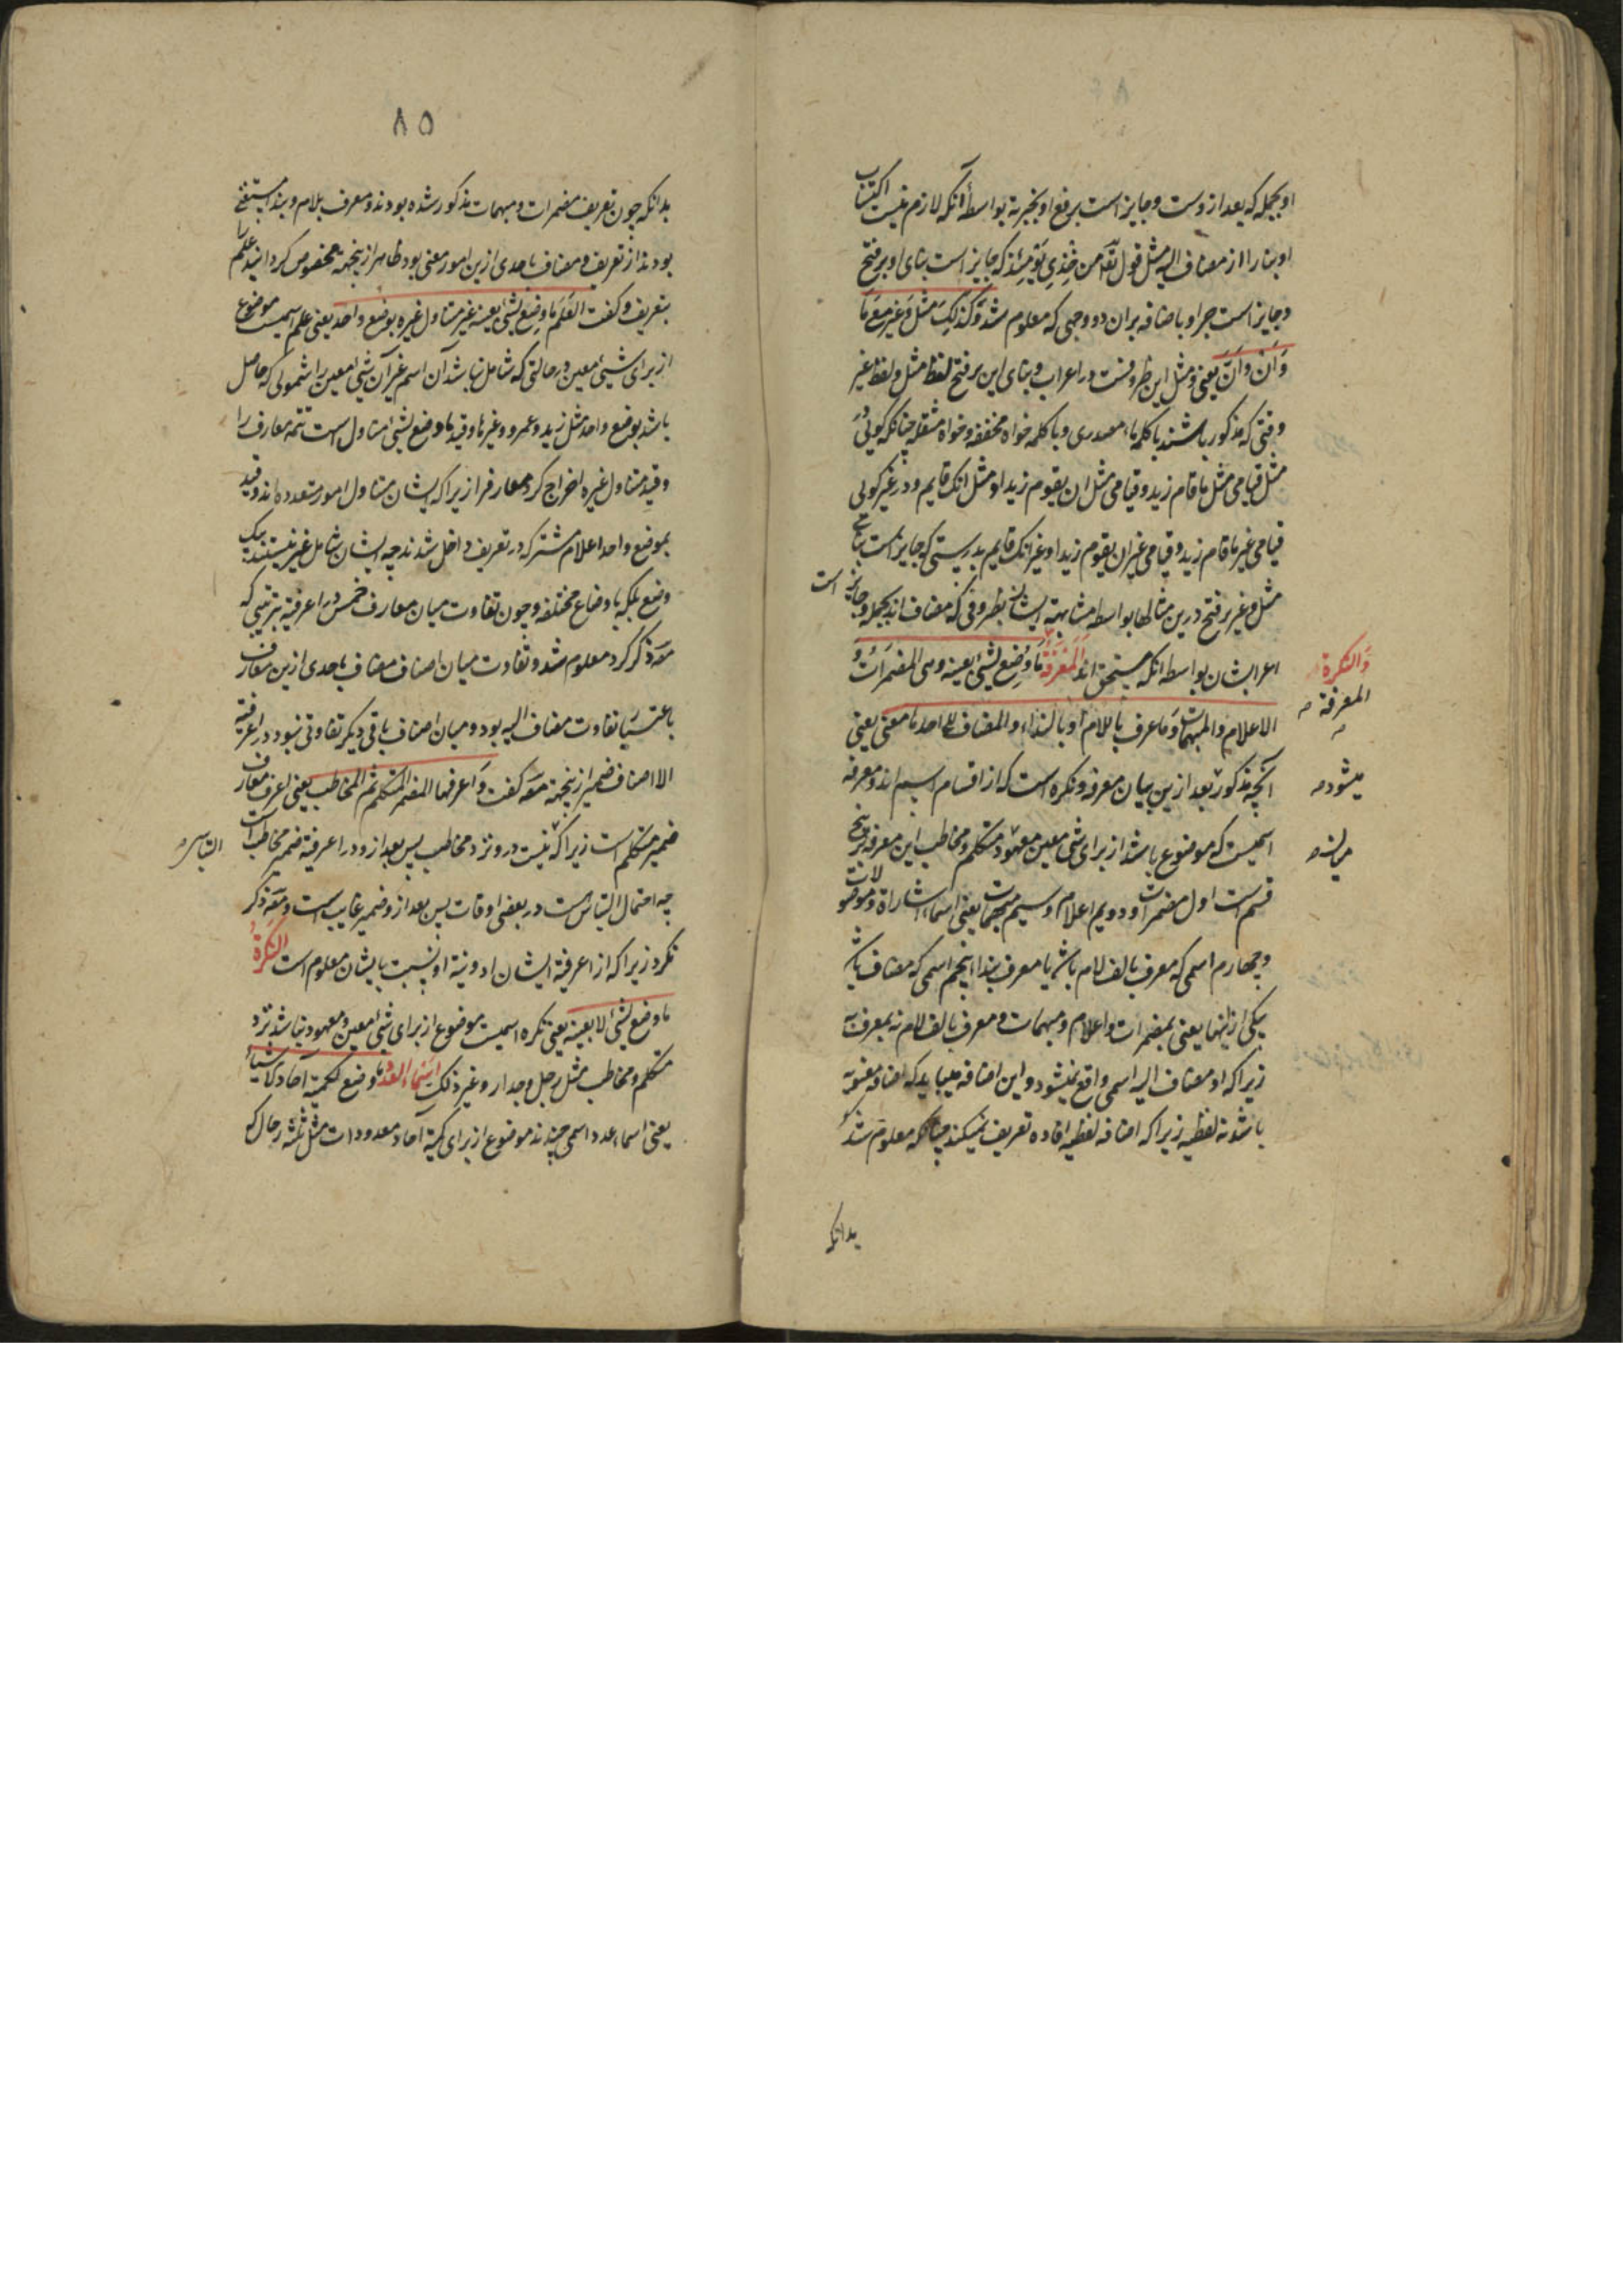 او بجمله که بعد ازوست و جایز است برفع او بخبریة بواسطه آنکه لازم نیست اکتساب
او بنا را از مضاف الیه مثل قول تع من خِزْیِ یَومَئِذ که جایز است بنای او بر فتح
و جایز است جر او باضافه بران دو وجهی که معلوم شد وَکَذلِکَ مثل وَغَیر مَعَ مَا
وَاَنْ وَاَنَّ یعنی و مثل این ظروفست در اعراب و بنای این بر فتح لفظ مثل و لفظ غیر
وقتی که مذکور باشند با کلمه ماء مصدری و با کلمه خواه مخففه و خواه مثقله چنانکه کوئی
مثل قیامی مثل ما قام زید و قیامی مثل ان یقوم زید او مثل انک قایم و در غیر کوئی
قیامی غیر ما قام زید و قیامی غیر ان یقوم زید او غیر انک قایم بدرستی که جایز است بنای
مثل و غیر بر فتح درین مثالها بواسطه مشابهة ایشان بظروفی که مضاف اند بجمله و جایز است
اعراب ایشان بواسطه انکه مستحق اند المَعْرِفَةُ مَا وُضِع لِشَیْ بعینه وهی المضمَرَاتُ وَ
الاعلام والمبهمات وَمَا عرف باللام او بالنداء والمضاف الی احدها معنی یعنی
آنچه مذکور بعد ازین بیان معرفه و نکره است که از اقسام اسم اند و معرفه
اسمیست که موضوع باشد از برای شی معین معهود متکلم و مخاطب این معرفه بر پنج
قسم است اول مضمرات و دویم اعلام و سیم مبهمات یعنی اسماء اشاراة و موصولات
و چهارم اسمی که معرف بالف لام باشد یا معرف بنداء پنجم اسمی که مضاف باشد
بیکی ازاینها یعنی بمضمرات و اعلام و مبهمات و معرف بالف لام نه بمعرف به
زیراکه او مضاف الیه اسمی واقع نمیشود و این اضافه میباید که اضافه معنویه
باشد نه لفظیه زیراکه اضافه لفظیه افاده تعریف نمیکند چنانکه معلوم شد
وَالنکرة
المعرفة
میشود
بدانکه
۸۵
بدانکه چون تعریف مضمرات و مبهمات مذکور شده بودند و معرف بلام و بنداء مستغنی
بودند از تعریف و مضاف باحدی ازین امور معنی بود ظاهر ازینجهة مخصوص کردانید علم را
بتعریف و کفت العَلَم ما وضِع لشیْ بعینه غیر متناول غیره بوضع واحد یعنی علم اسمیست موضوع
از برای شیئی معین در حالتی که شامل نباشد آن اسم غیر آن شیئ معین را شمولی که حاصل
باشد بوضع واحد مثل زید و عمرو و غیرها و قید ما وضع لشیئ متناول است تتمه معارف را
و قید متناول غیره اخراج کرد معارف را زیراکه ایشان متناول امور متعدده اند و قید
بموضع واحد اعلام مشترکه در تعریف داخل شدند چه ایشان شامل غیر نیستند بیک
وضع بلکه باوضاع مختلفه و چون تفاوت میان معارف خمس در اعرفیة بترتیبی که
مص ذکر کرد معلوم شد و تفاوت میان اصناف مضاف باحدی ازین معارف
باعتبار تفاوت مضاف الیه بود و میان اصناف باقی دیکر تفاوتی نبود در اعرفیة
الا اصناف ضمیر ازینجهة مص کفت وَاَعرفها المضمر المتکلم ثم المخاطب یعنی اعرف معارف
ضمیر متکلم است زیراکه نیست درو نزد مخاطب پس بعد ازو در اعرفیة ضمیر مخاطب است
التباسی
چه احتمال التباس هست در بعضی اوقات پس بعد ازو ضمیر غایب است و مص ذکر
نکرد زیراکه از اعرفیة ایشان ادونیة او بنسبت بایشان معلوم است النَکرةُ
ما وضع لشئ لا بعینه یعنی نکره اسمیست موضوع از برای شیئ معین و معهود نباشد نزد
متکلم و مخاطب مثل رجل و جدار و غیر ذلک اَسْمَاءُ العَدد ما وضع لکمیة آحاد الاشیاء
یعنی اسماء عدد اسمی چندند موضوع از برای کمیة آحاد معدودات مثل ثلثه رجال که